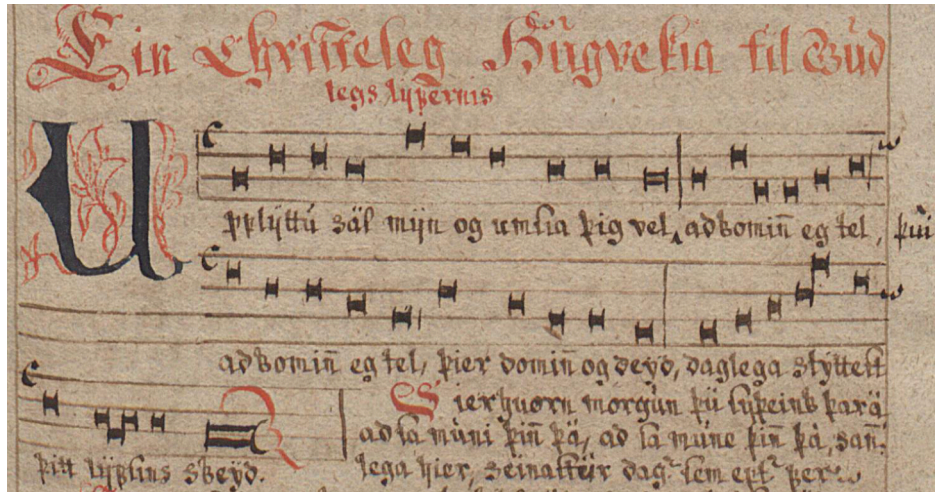 Ein Christeleg Hugvekia til Gud
legs lijfernis
Upplijttu sál mijn og umsia þig vel, adkominn eg tel, þui
adkominn eg tel, þier dominn og deyd, daglega styttest
þitt lijfsins skeyd.
Sierhuorn morgun þu
ad sa mune þinn þá, ad sa mune þinn þá, sann
lega hier, seinastur dagr sem eptr